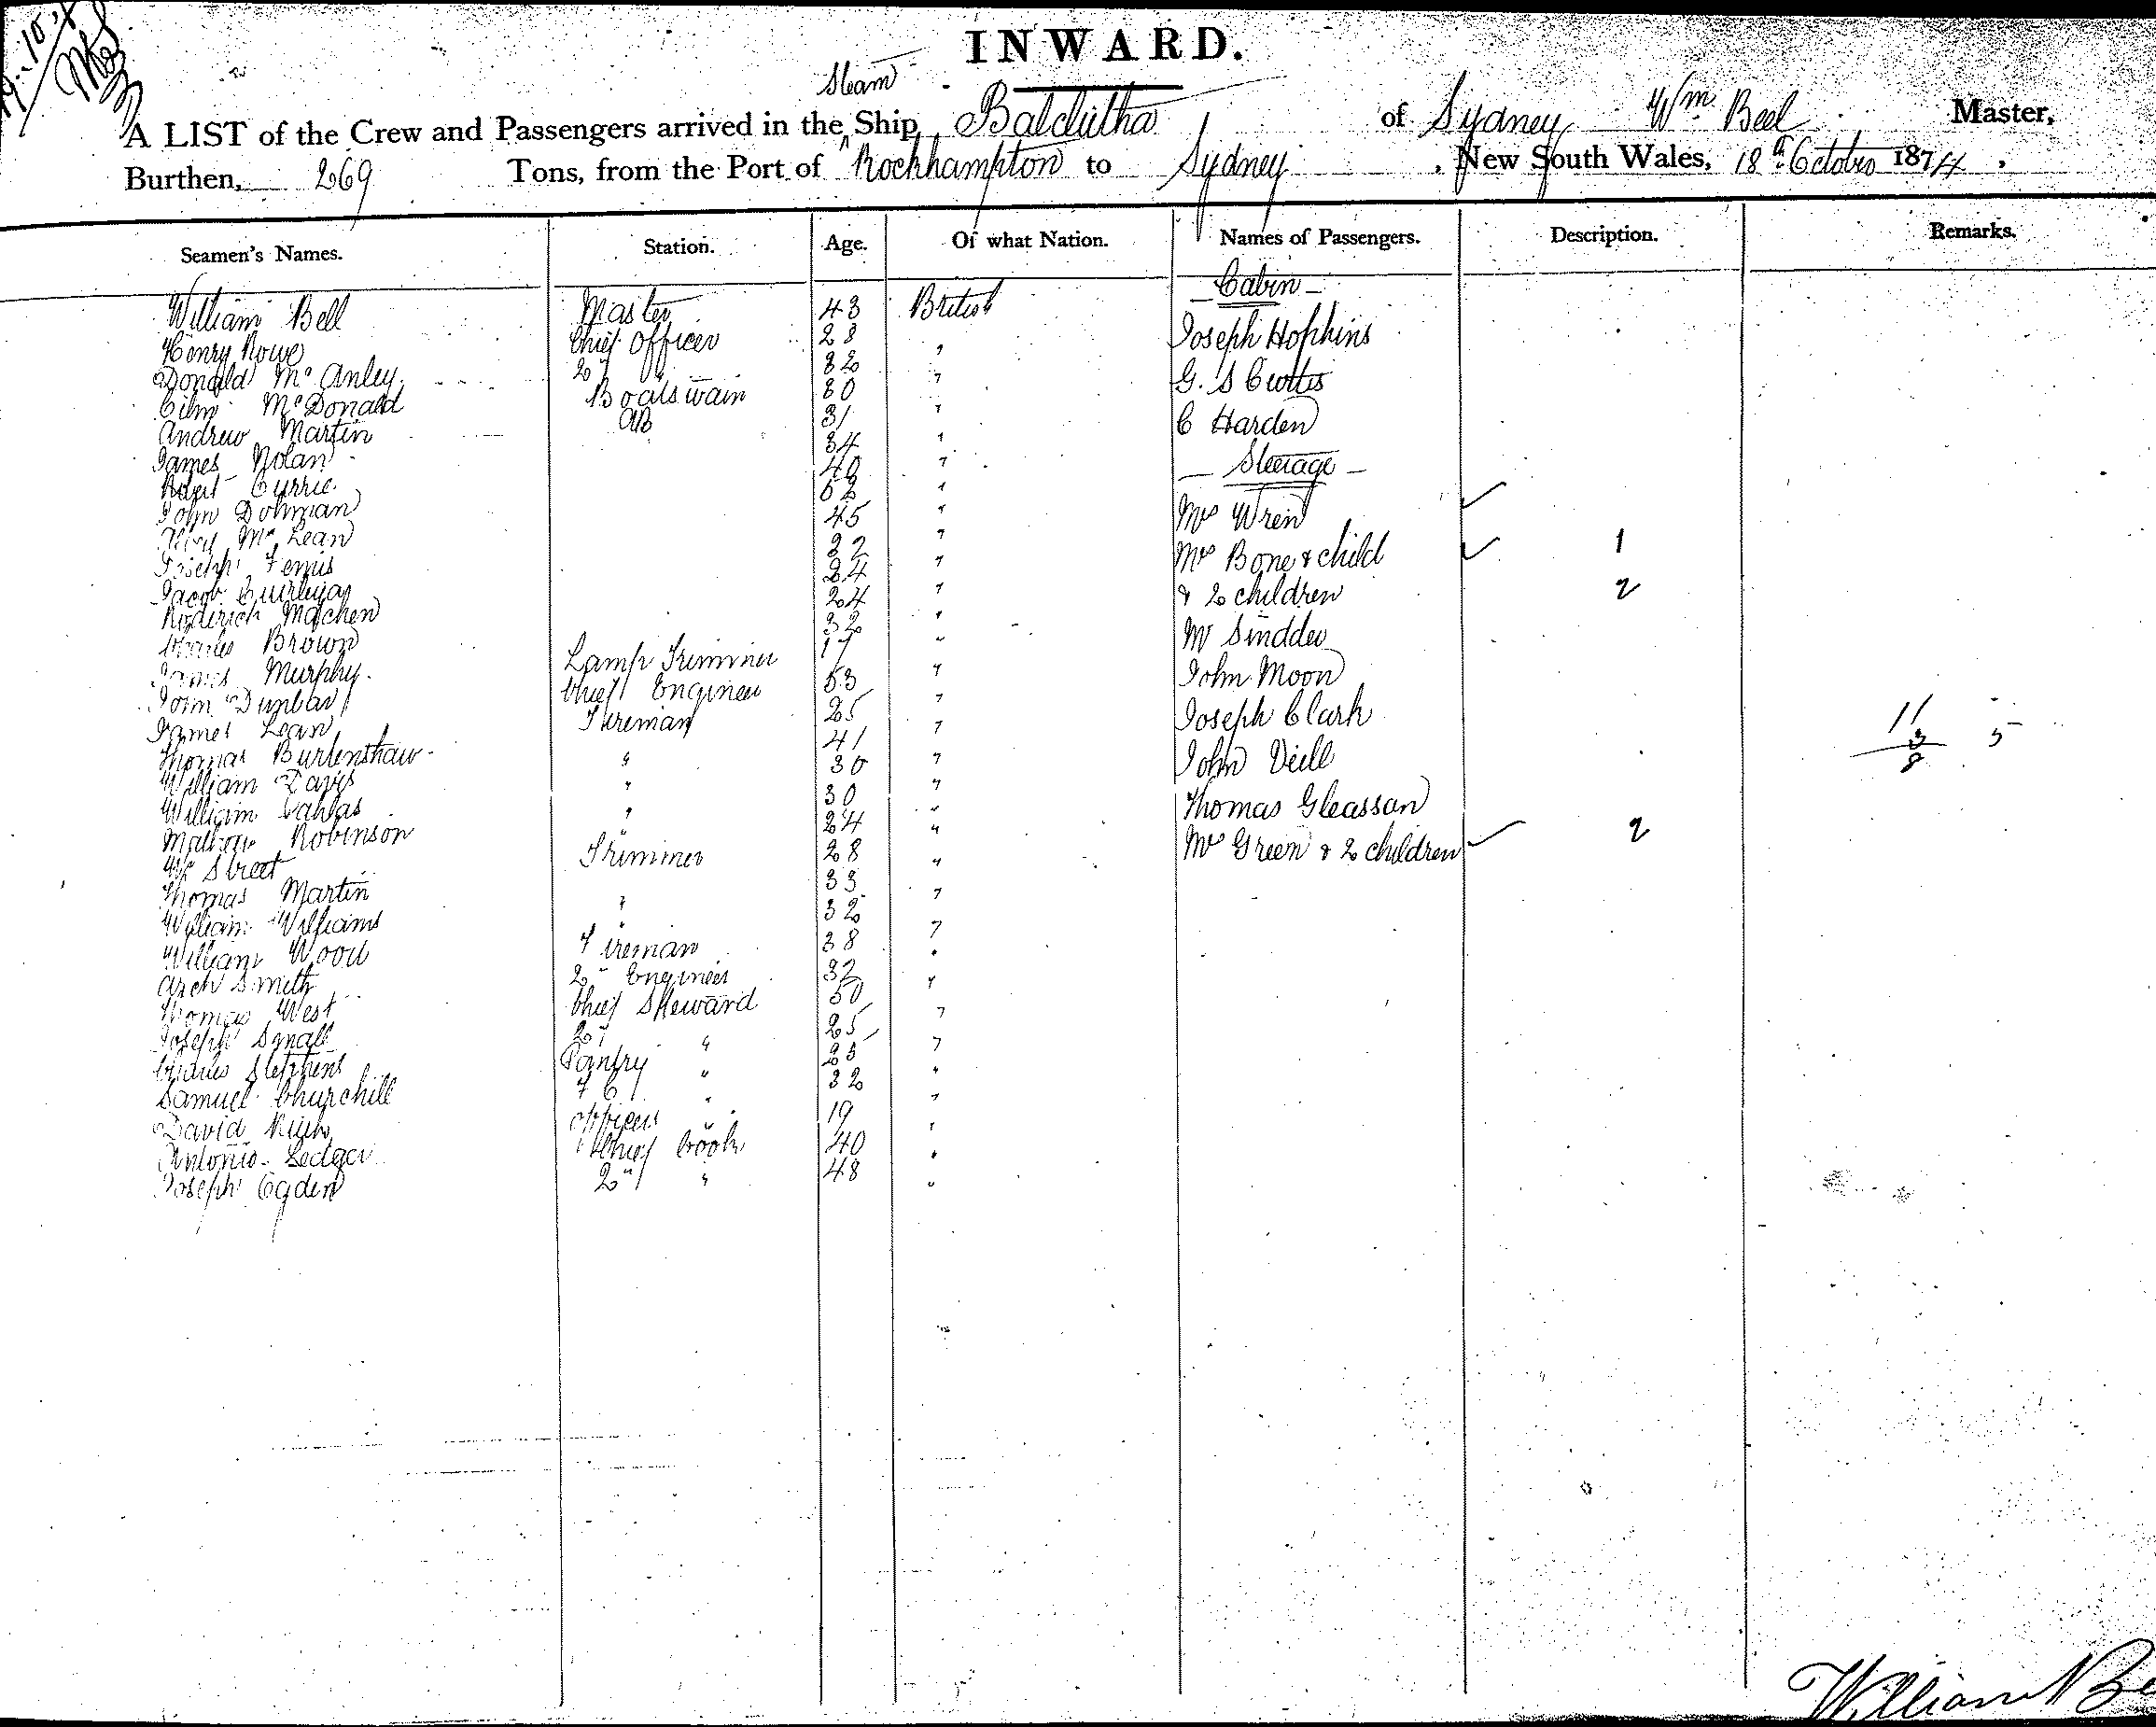 INWARD.
Steam
A LIST of the Crew and Passengers arrived in the Ship, Balclutha of Sydney Wm. Bell Master,
Burthen, 269 Tons, from the Port of Rockhampton to Sydney, New South Wales, 18th October 1874,
Seamen's Names. Station. Age. Of what Nation. Names of Passengers. Description. Remarks.
William Bell Master 43 British
Henry Rowe Chief Officer 28 "
Donald McAnley 2 " 32 "
McDonald Boatswain 30 "
Andrew Martin AB 31 "
James Nolan 34 "
Robert Currie 40 "
John Dohman 62 "
McLean 45 "
Joseph 32 "
Jacob 24 "
Roderick Machen 24 "
Charles Brown 32 "
James Murphy Lamp Trimmer 17 "
John Dunbar Chief Engineer 53 "
James Lean Fireman 25 "
Thomas Burtenshaw " 41 "
William Davis " 30 "
William " 30 "
Mathew Robinson " 24 "
Street Trimmer 28 "
Thomas Martin " 33 "
William Williams " 32 "
William Wood Fireman 38 "
Arch Smith 2" Engineer 32 "
Thomas West Chief Steward 50 "
Joseph Small 2" " 25 "
Charles Stephens Pantry " 23 "
Samuel Churchill F C " 32 "
David Officers " 19 "
Antonio Chief Cook 40 "
Joseph Ogden 2" " 48 "
Cabin
Joseph Hopkins
G. S Curtis
C Harden
Steerage
Mrs Wren
Mrs Bone & child 1
& 2 children 2
Mr
John Moon
Joseph Clark
John Veill
Thomas Gleassan
Mrs Green & 2 children 2
11
3 5
8
William Be